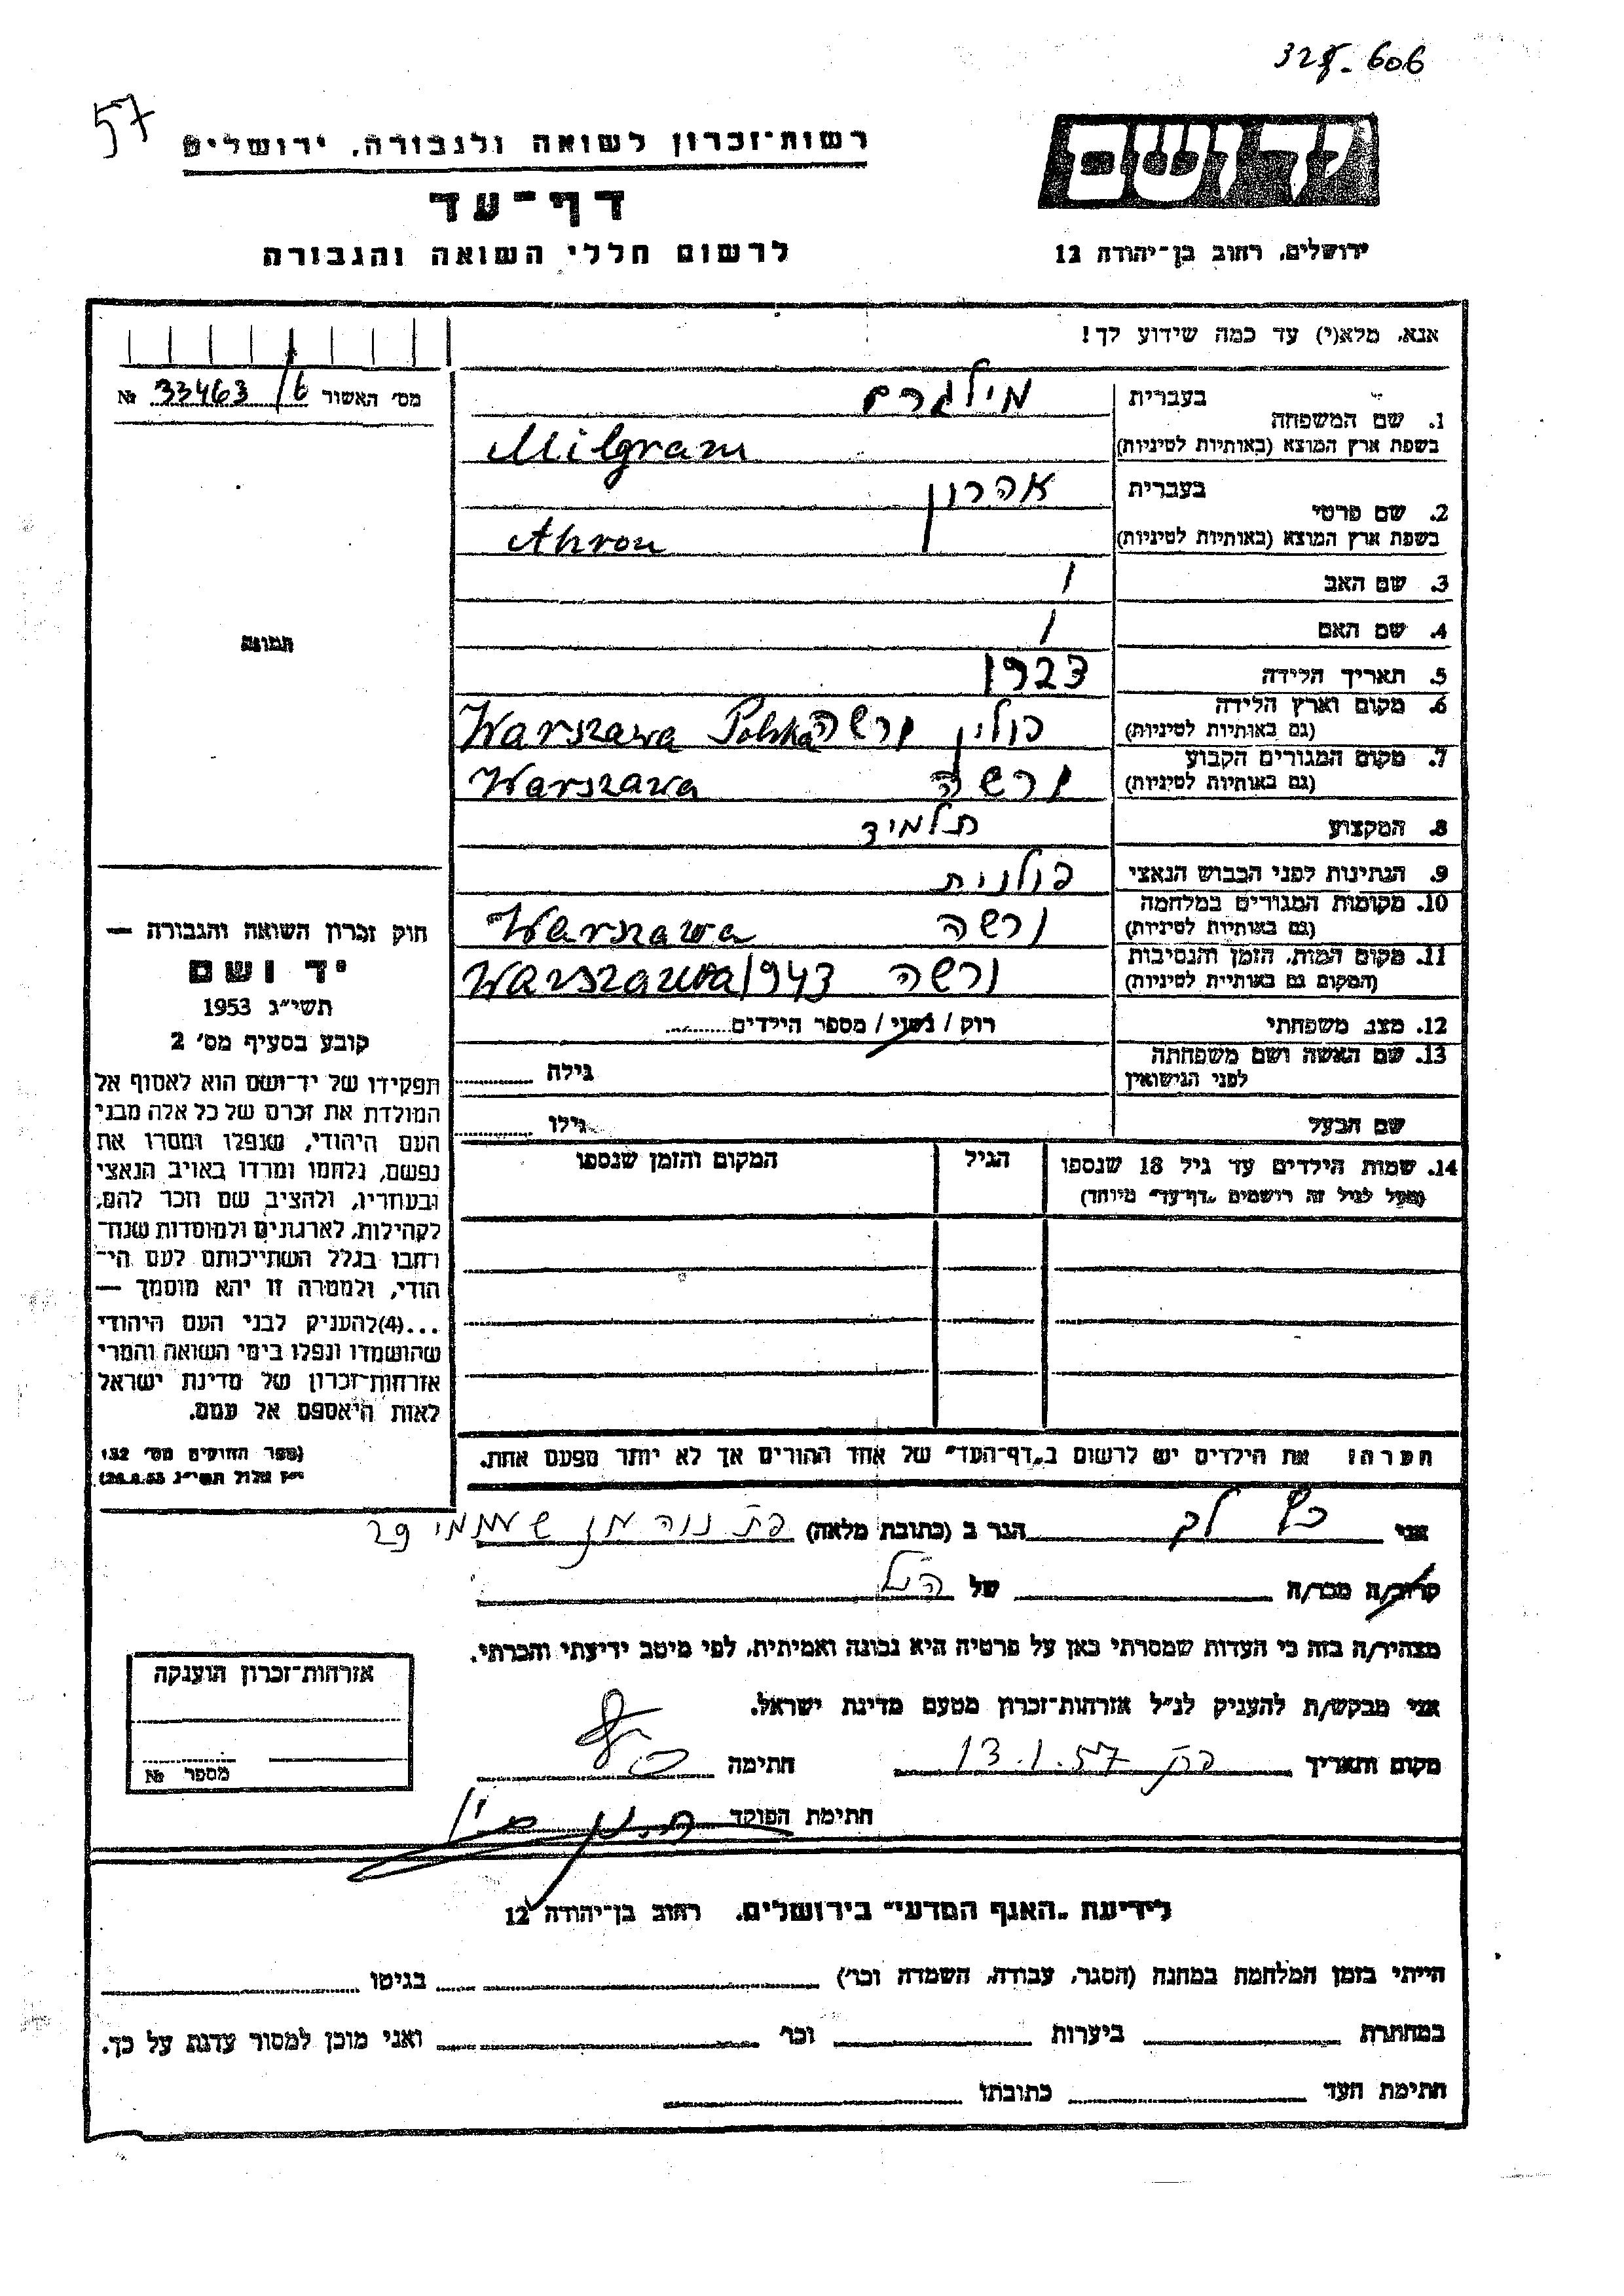 606
57
יד ושם
רשות־זכרון לשואה ולגבורה, ירושלים
דף־עד
לרשום חללי השואה והגבורה
ירושלים, רחוב בן־יהודה 12
אנא, מלא(י) עד כמה שידוע לך!
מס׳ האשור 33463/6 №
תמונה
בעברית מילגרם
1. שם המשפחה
בשפת ארץ המוצא (באותיות לטיניות) Milgram
בעברית אהרון
2. שם פרטי
בשפת ארץ המוצא (באותיות לטיניות) Ahron
3. שם האב /
4. שם האם /
5. תאריך הלידה 1923
6. מקום וארץ הלידה
(גם באותיות לטיניות) פולין ורשה Warszawa Polska
7. מקום המגורים הקבוע
(גם באותיות לטיניות) ורשה Warszawa
8. המקצוע תלמיד
9. הנתינות לפני הכבוש הנאצי פולנית
10. מקומות המגורים במלחמה
(גם באותיות לטיניות) ורשה Warszawa
11. מקום המות, הזמן והנסיבות
(המקום גם באותיות לטיניות) ורשה Warszawa 1943
12. מצב משפחתי רוק / נשוי / מספר הילדים
13. שם האשה ושם משפחתה
לפני הנישואין גילה
שם הבעל גילו
14. שמות הילדים עד גיל 18 שנספו הגיל המקום והזמן שנספו
(מעל לגיל זה רושמים „דף־עד״ מיוחד)
חוק זכרון השואה והגבורה —
יד ושם
תשי״ג 1953
קובע בסעיף מס׳ 2
תפקידו של יד־ושם הוא לאסוף אל
המולדת את זכרם של כל אלה מבני
העם היהודי, שנפלו ומסרו את
נפשם, נלחמו ומרדו באויב הנאצי
ובעוזריו, ולהציב שם וזכר להם,
לקהילות, לארגונים ולמוסדות שנח־
רבו בגלל השתייכותם לעם הי־
הודי, ולמטרה זו יהא מוסמך —
...(4)להעניק לבני העם היהודי
שהושמדו ונפלו בימי השואה והמרי
אזרחות־זכרון של מדינת ישראל
לאות היאספם אל עמם.
(ספר החוקים מס׳ 132,
י״ז אלול תשי״ג 28.8.53)
הערה: את הילדים יש לרשום ב„דף־העד״ של אחד ההורים אך לא יותר מפעם אחת.
אני כץ הגר ב (כתובת מלאה) נוה 29
קרוב/ה מכר/ה של הנ״ל
מצהיר/ה בזה כי העדות שמסרתי כאן על פרטיה היא נכונה ואמיתית, לפי מיטב ידיעתי והכרתי.
אני מבקש/ת להעניק לנ״ל אזרחות־זכרון מטעם מדינת ישראל.
מקום ותאריך 13.1.57 חתימה
חתימת הפוקד
אזרחות־זכרון הוענקה
מספר №
לידיעת „האגף המדעי״ בירושלים, רחוב בן־יהודה 12
הייתי בזמן המלחמה במחנה (הסגר, עבודה, השמדה וכו׳) בגיטו
במחתרת ביערות וכו׳ ואני מוכן למסור עדות על כך.
חתימת העד כתובתו